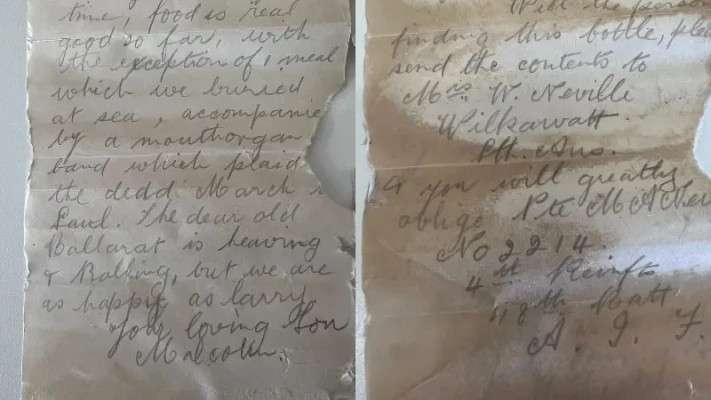 time, food is real
good so far, with
the exception of 1 meal
which we buried
at sea, accompanie
by a mouthorgan
band which plaid
the dedd March
Saul. The dear old
Ballarat is heaving
& Rolling, but we are
as happy as larry
Your loving Son
Malcolm.
Will the person
finding this bottle, plea
send the contents to
Mrs W. Neville
Wilkawatt.
Sth. Aus.
& you will greatly
oblige Pte M A Nev
No 2214.
4th Reinfts
48th Batt
A. I. F.